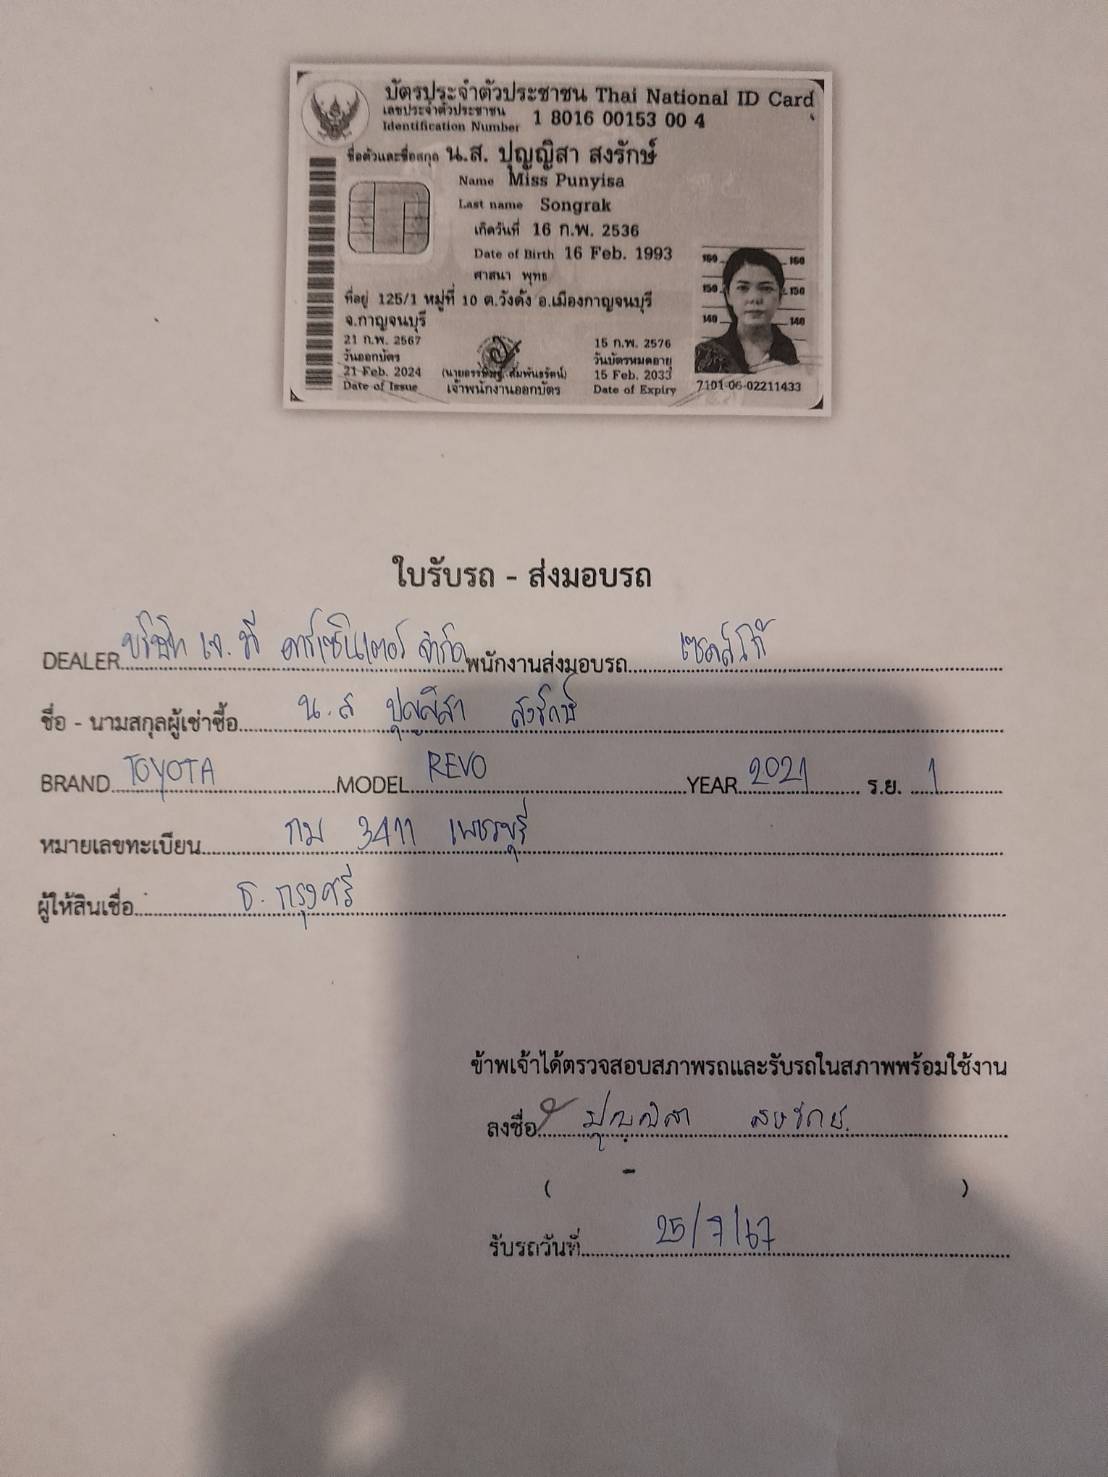 บัตรประจำตัวประชาชน Thai National ID Card
เลขประจำตัวประชาชน
Identification Number 1 8016 00153 00 4
ชื่อตัวและชื่อสกุล น.ส. ปุญญิสา สงรักษ์
Name Miss Punyisa
Last name Songrak
เกิดวันที่ 16 ก.พ. 2536
Date of Birth 16 Feb. 1993
ศาสนา พุทธ
ที่อยู่ 125/1 หมู่ที่ 10 ต.วังด้ง อ.เมืองกาญจนบุรี
จ.กาญจนบุรี
21 ก.พ. 2567
วันออกบัตร
21 Feb. 2024
Date of Issue
เจ้าพนักงานออกบัตร
15 ก.พ. 2576
วันบัตรหมดอายุ
15 Feb. 2033
Date of Expiry
160 160
150 150
140 140
7101-06-02211433
ใบรับรถ - ส่งมอบรถ
DEALER บริษัท เจ. ที คาร์เซ็นเตอร์ จำกัด พนักงานส่งมอบรถ
ชื่อ - นามสกุลผู้เช่าซื้อ น.ส ปุญญิสา สงรักษ์
BRAND TOYOTA MODEL REVO YEAR 2021 ร.ย. 1
หมายเลขทะเบียน กม 3411 เพชรบุรี
ผู้ให้สินเชื่อ ธ. กรุงศรี
ข้าพเจ้าได้ตรวจสอบสภาพรถและรับรถในสภาพพร้อมใช้งาน
ลงชื่อ ปุญญิสา สงรักษ์
( - )
รับรถวันที่ 25/7/67